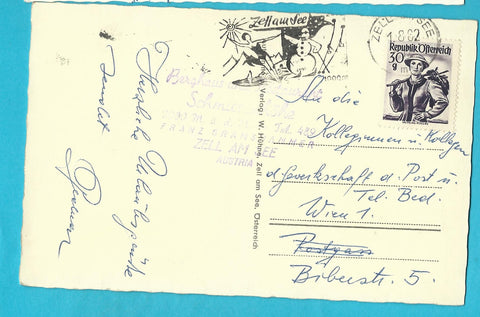 Herzliche Urlaubsgrüsse
sendet
Zell am See
Berghaus
Schmitten
Tel. 489
ZELL AM SEE
AUSTRIA
Verlag: W. Höhne, Zell am See, Österreich
ZELL AM SEE
8.62
Republik Österreich
30
g
An die
Kolleginnen u. Kollegen
d. Gewerkschaft d. Post u.
Tel. Bed.
Wien 1.
Postgasse
Biberstr. 5.